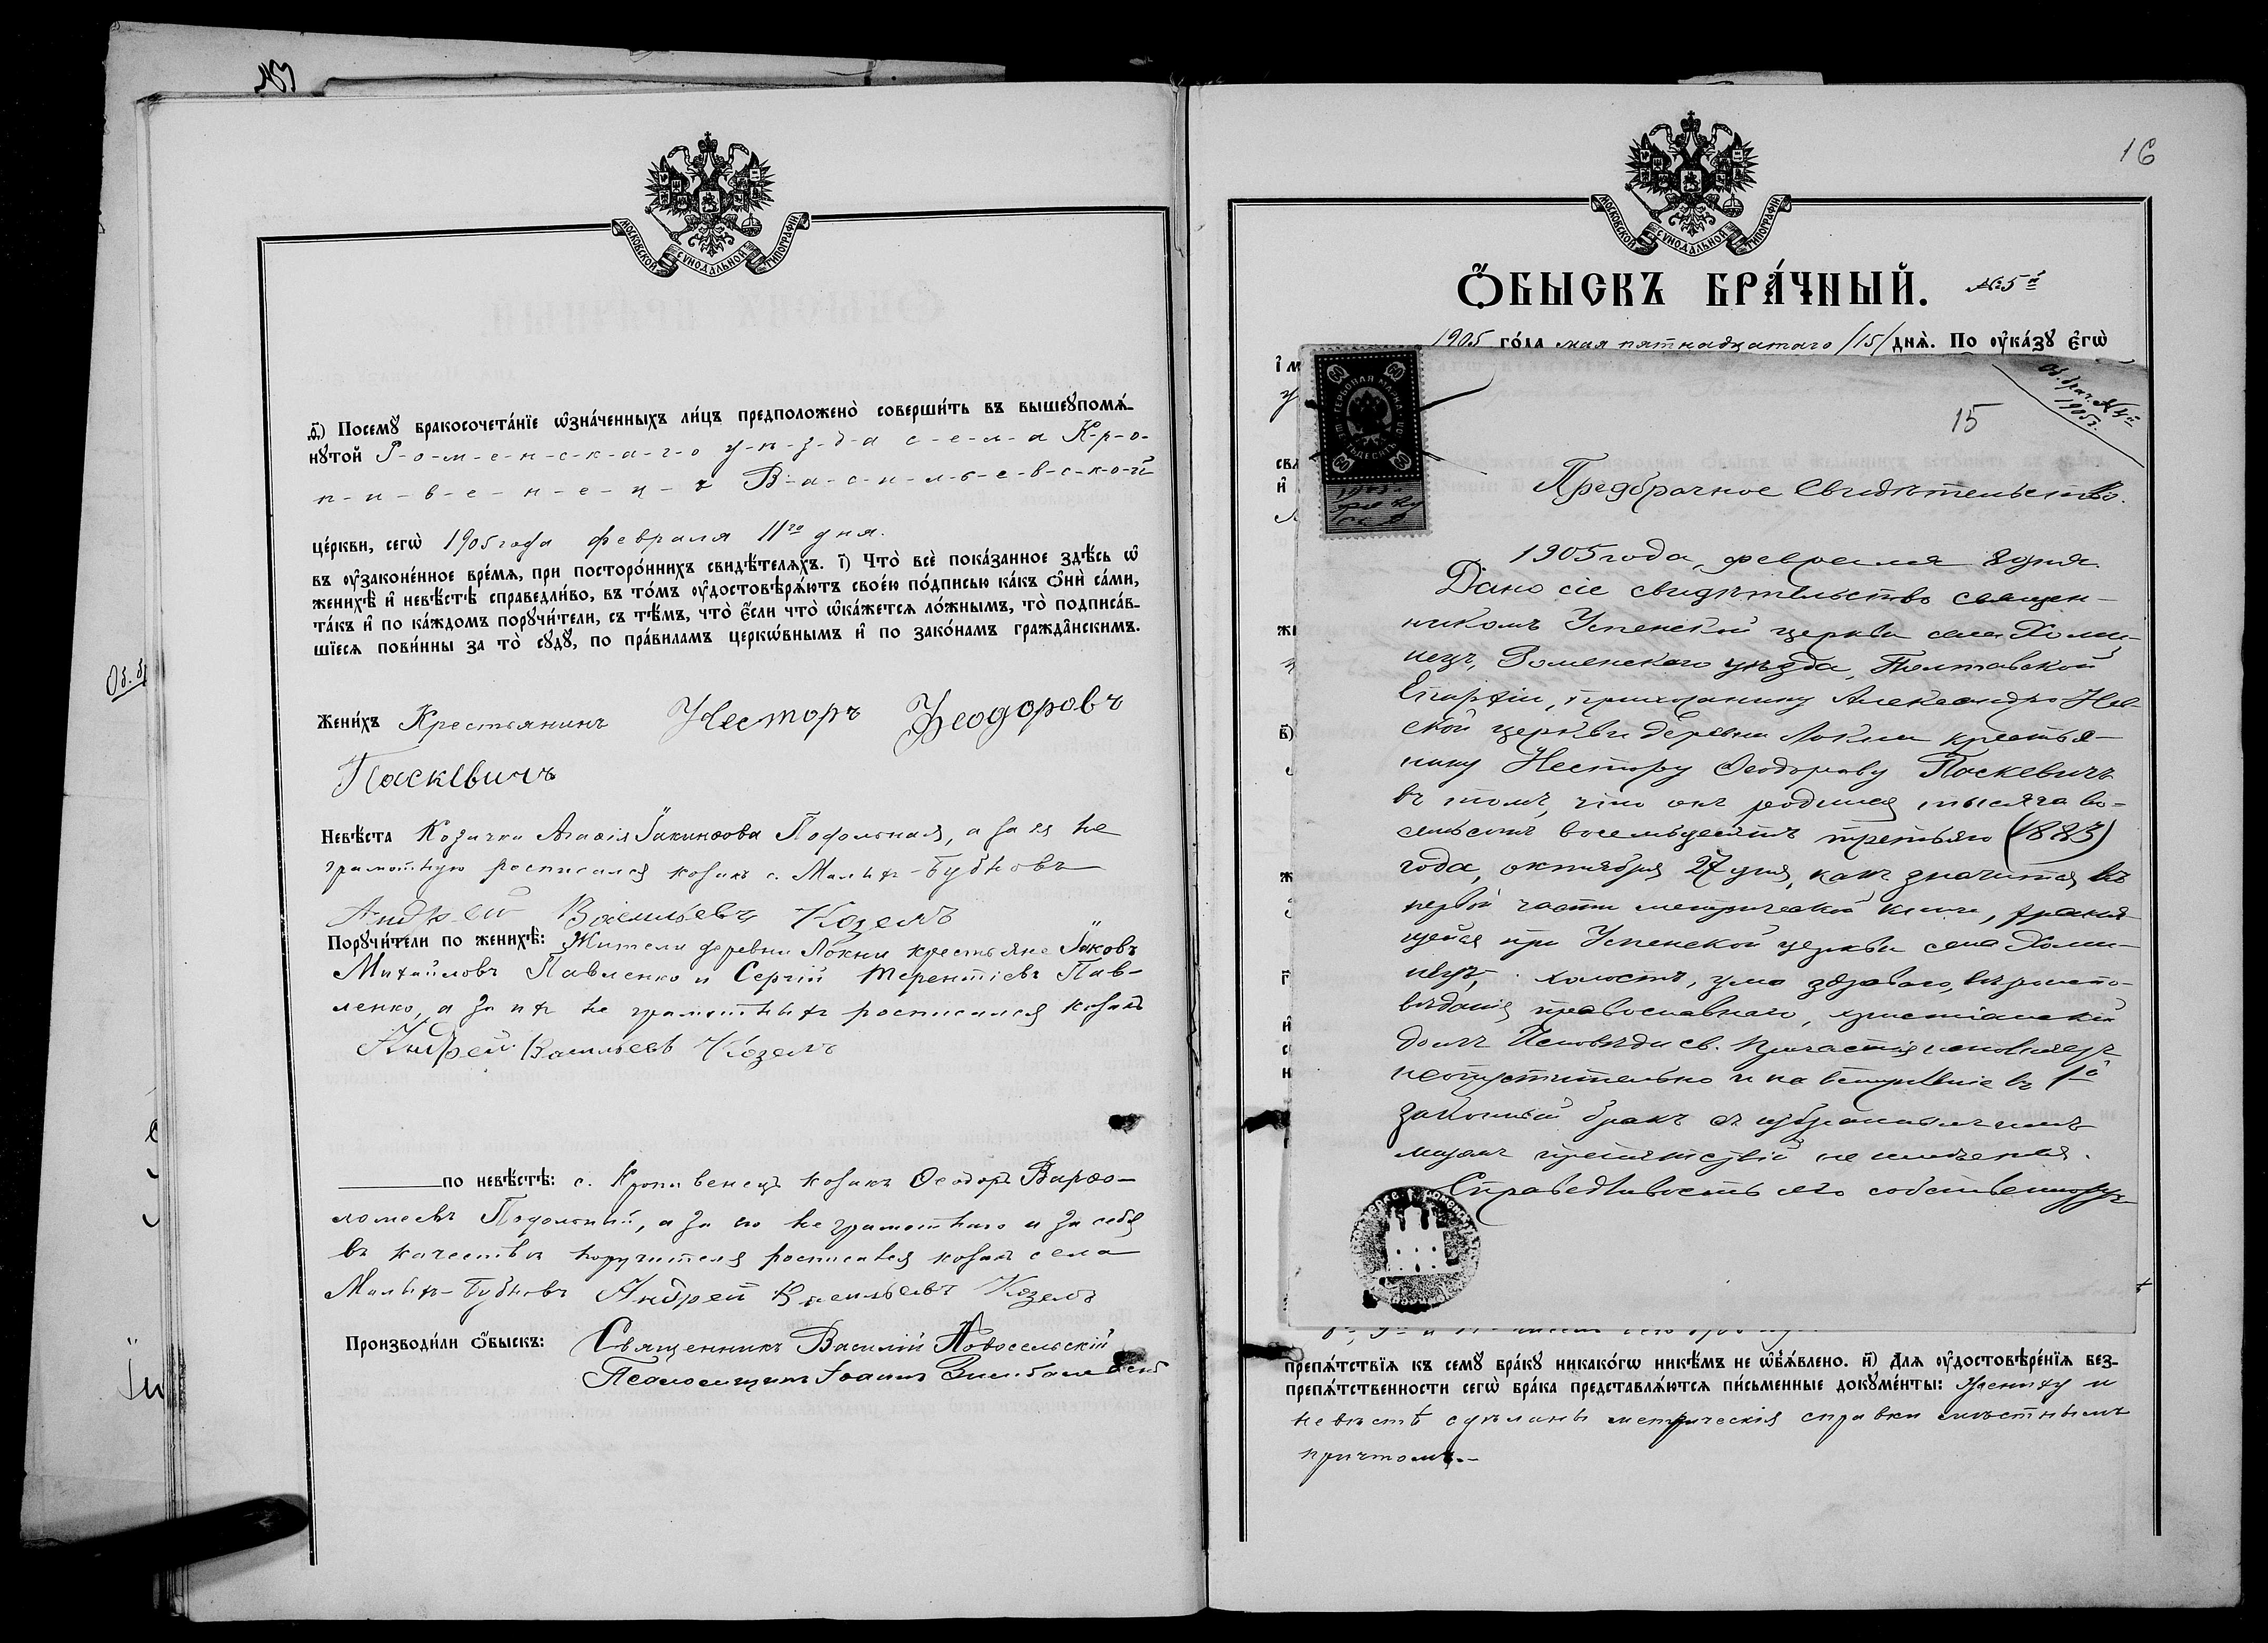 МОСКОВСКОЙ СУНОДАЛЬНОЙ ТИПОГРАФІИ
д҃і) Посемꙋ бракосочета́нїе ѡ҆зна́ченныхъ ли́цъ предположено̀ соверши́ть въ вышеꙋпомѧ́-
нꙋтой Р-о-м-е-н-с-к-а-г-о у-ѣ-з-д-а с-е-л-а К-р-о-
п-и-в-е-н-е-ц-ъ В-а-с-и-л-ь-е-в-с-к-о-й
це́ркви, сегѡ̀ 1905 года февраля 11го дня.
въ ᲂу҆законе́нное вре́мѧ, при посторо́ннихъ свидѣ́телѧхъ. і҃) Что̀ всѐ пока́занное здѣ́сь ѡ҆
женихѣ̀ и҆ невѣ́стѣ справедли́во, въ то́мъ ᲂу҆достовѣрѧ́ютъ свое́ю по́дписью ка́къ ѻ҆нѝ са́ми,
та́къ и҆ по ка́ждомъ порꙋчи́тели, съ тѣ́мъ, что̀ є҆́сли что̀ ѡ҆ка́жетсѧ ло́жнымъ, то̀ подписа́в-
шїесѧ пови́нны за то̀ сꙋдꙋ̀, по пра́виламъ церко́внымъ и҆ по зако́намъ гражда́нскимъ.
Жени́хъ Крестьянинъ Несторъ Ѳеодоровъ
Паскевичъ
Невѣ́ста Козачка Агаѳія Іакинѳова Подольная, а за ея не
грамотную росписался козакъ с. Малыхъ-Бубновъ
Андрей Васильевъ Козелъ
Порꙋчи́тели по женихѣ̀: Жители деревни Локни крестьяне Іаковъ
Михайловъ Павленко и Сергій Терентіевъ Пав-
ленко, а за ихъ не грамотныхъ росписался козакъ
Андрей Васильевъ Козелъ
по невѣ́стѣ: с. Кропивенецъ козакъ Ѳеодоръ Варѳо-
ломеевъ Подольный, а за его не грамотнаго и за себя
въ качествѣ поручителя росписался козакъ села
Малыхъ-Бубновъ Андрей Васильевъ Козелъ
Производи́ли ѻ҆́быскъ: Священникъ Василій Новосельскій
Псаломщикъ Іоаннъ
16
МОСКОВСКОЙ СУНОДАЛЬНОЙ ТИПОГРАФІИ
Ѻ҆́БЫСКЪ БРА́ЧНЫЙ. №5й
1905 го́да мая пятнадцатаго /15/ днѧ̀. По ᲂу҆ка́зꙋ є҆гѡ̀
Об. брач. №4й
1905 г.
15
ГЕРБОВАЯ МАРКА
60
Предбрачное Свидѣтельство.
1905 года, февраля 8 дня.
Дано сіе свидѣтельство священ-
никомъ Успенской церкви села Холми-
нецъ, Роменскаго уѣзда, Полтавской
Епархіи, прихожанину Александро-Нев-
ской церкви деревни Локни крестья-
нину Нестору Ѳеодорову Паскевичъ
въ томъ, что онъ родился тысяча во-
семьсотъ восемьдесятъ третьяго (1883)
года, октября 27 дня, какъ значится въ
первой части метрической книги, храня-
щейся при Успенской церкви села Холми-
нецъ, холостъ, ума здраваго, вѣроиспо-
вѣданія православнаго, христіанскій
долгъ Исповѣди и св. Причастія исполняетъ
неопустительно и на вступленіе въ 1й
законный бракъ съ избраннымъ имъ
лицомъ препятствій не имѣется.
Справедливость сего собственнору-
препѧ́тствїѧ къ семꙋ̀ бра́кꙋ никако́гѡ никѣ́мъ не ѡ҆б̾ѧ́влено. и҃) Длѧ ᲂу҆достовѣре́нїѧ без-
препѧ́тственности сегѡ̀ бра́ка представлѧ́ютсѧ пи́сьменные докꙋме́нты: жениху и
невѣстѣ сдѣланы метрическія справки мѣстнымъ
причтомъ.-